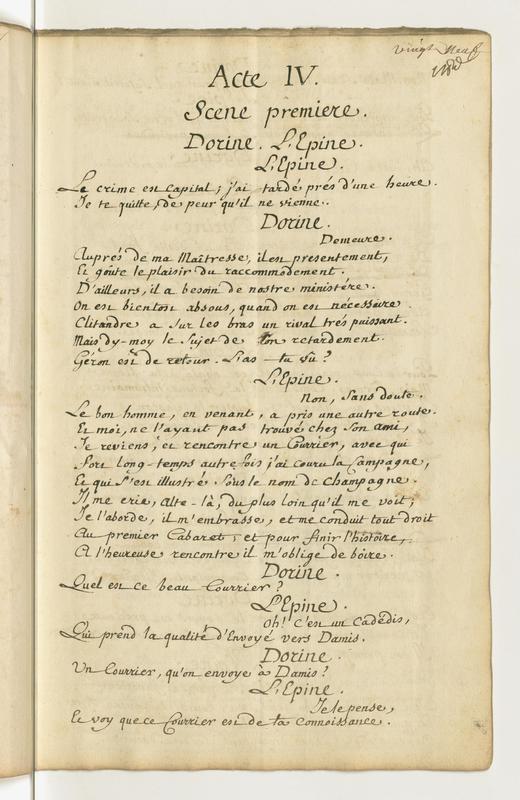 vingt Neuf
Acte IV.
Scene premiere.
Dorine. L'Epine.
L'Epine.
Le crime est capital; j'ai tardé prés d'une heure.
Je te quitte, de peur qu'il ne vienne..
Dorine.
Demeure.
Auprés de ma Maîtresse, il est presentement,
Et goûte le plaisir du raccommodement.
D'ailleurs, il a besoin de nostre ministére.
On est bientost absous, quand on est nécessaire.
Clitandre a sur les bras un rival trés puissant.
Mais dy-moy le sujet de ton retardement.
Géron est de retour. L'as-tu vû?
L'Epine.
Non, sans doute.
Le bon homme, en venant, a pris une autre route.
Et moi, ne l'ayant pas trouvé chez son ami,
Je reviens, et rencontre un Courrier, avec qui
Fort long-temps autrefois j'ai couru la Campagne,
Et qui s'est illustré sous le nom de Champagne.
Il me crie, alte-là, du plus loin qu'il me voit;
Je l'aborde, il m'embrasse, et me conduit tout droit
Au premier Cabaret; et pour finir l'histoire,
A l'heureuse rencontre il m'oblige de boire.
Dorine.
Quel est ce beau Courrier?
L'Epine.
Oh! c'est un Cadédis,
Qui prend la qualité d'Envoyé vers Damis.
Dorine.
Un Courrier, qu'on envoye à Damis?
L'Epine.
Je le pense,
Et voy que ce Courrier est de ta connoissance.